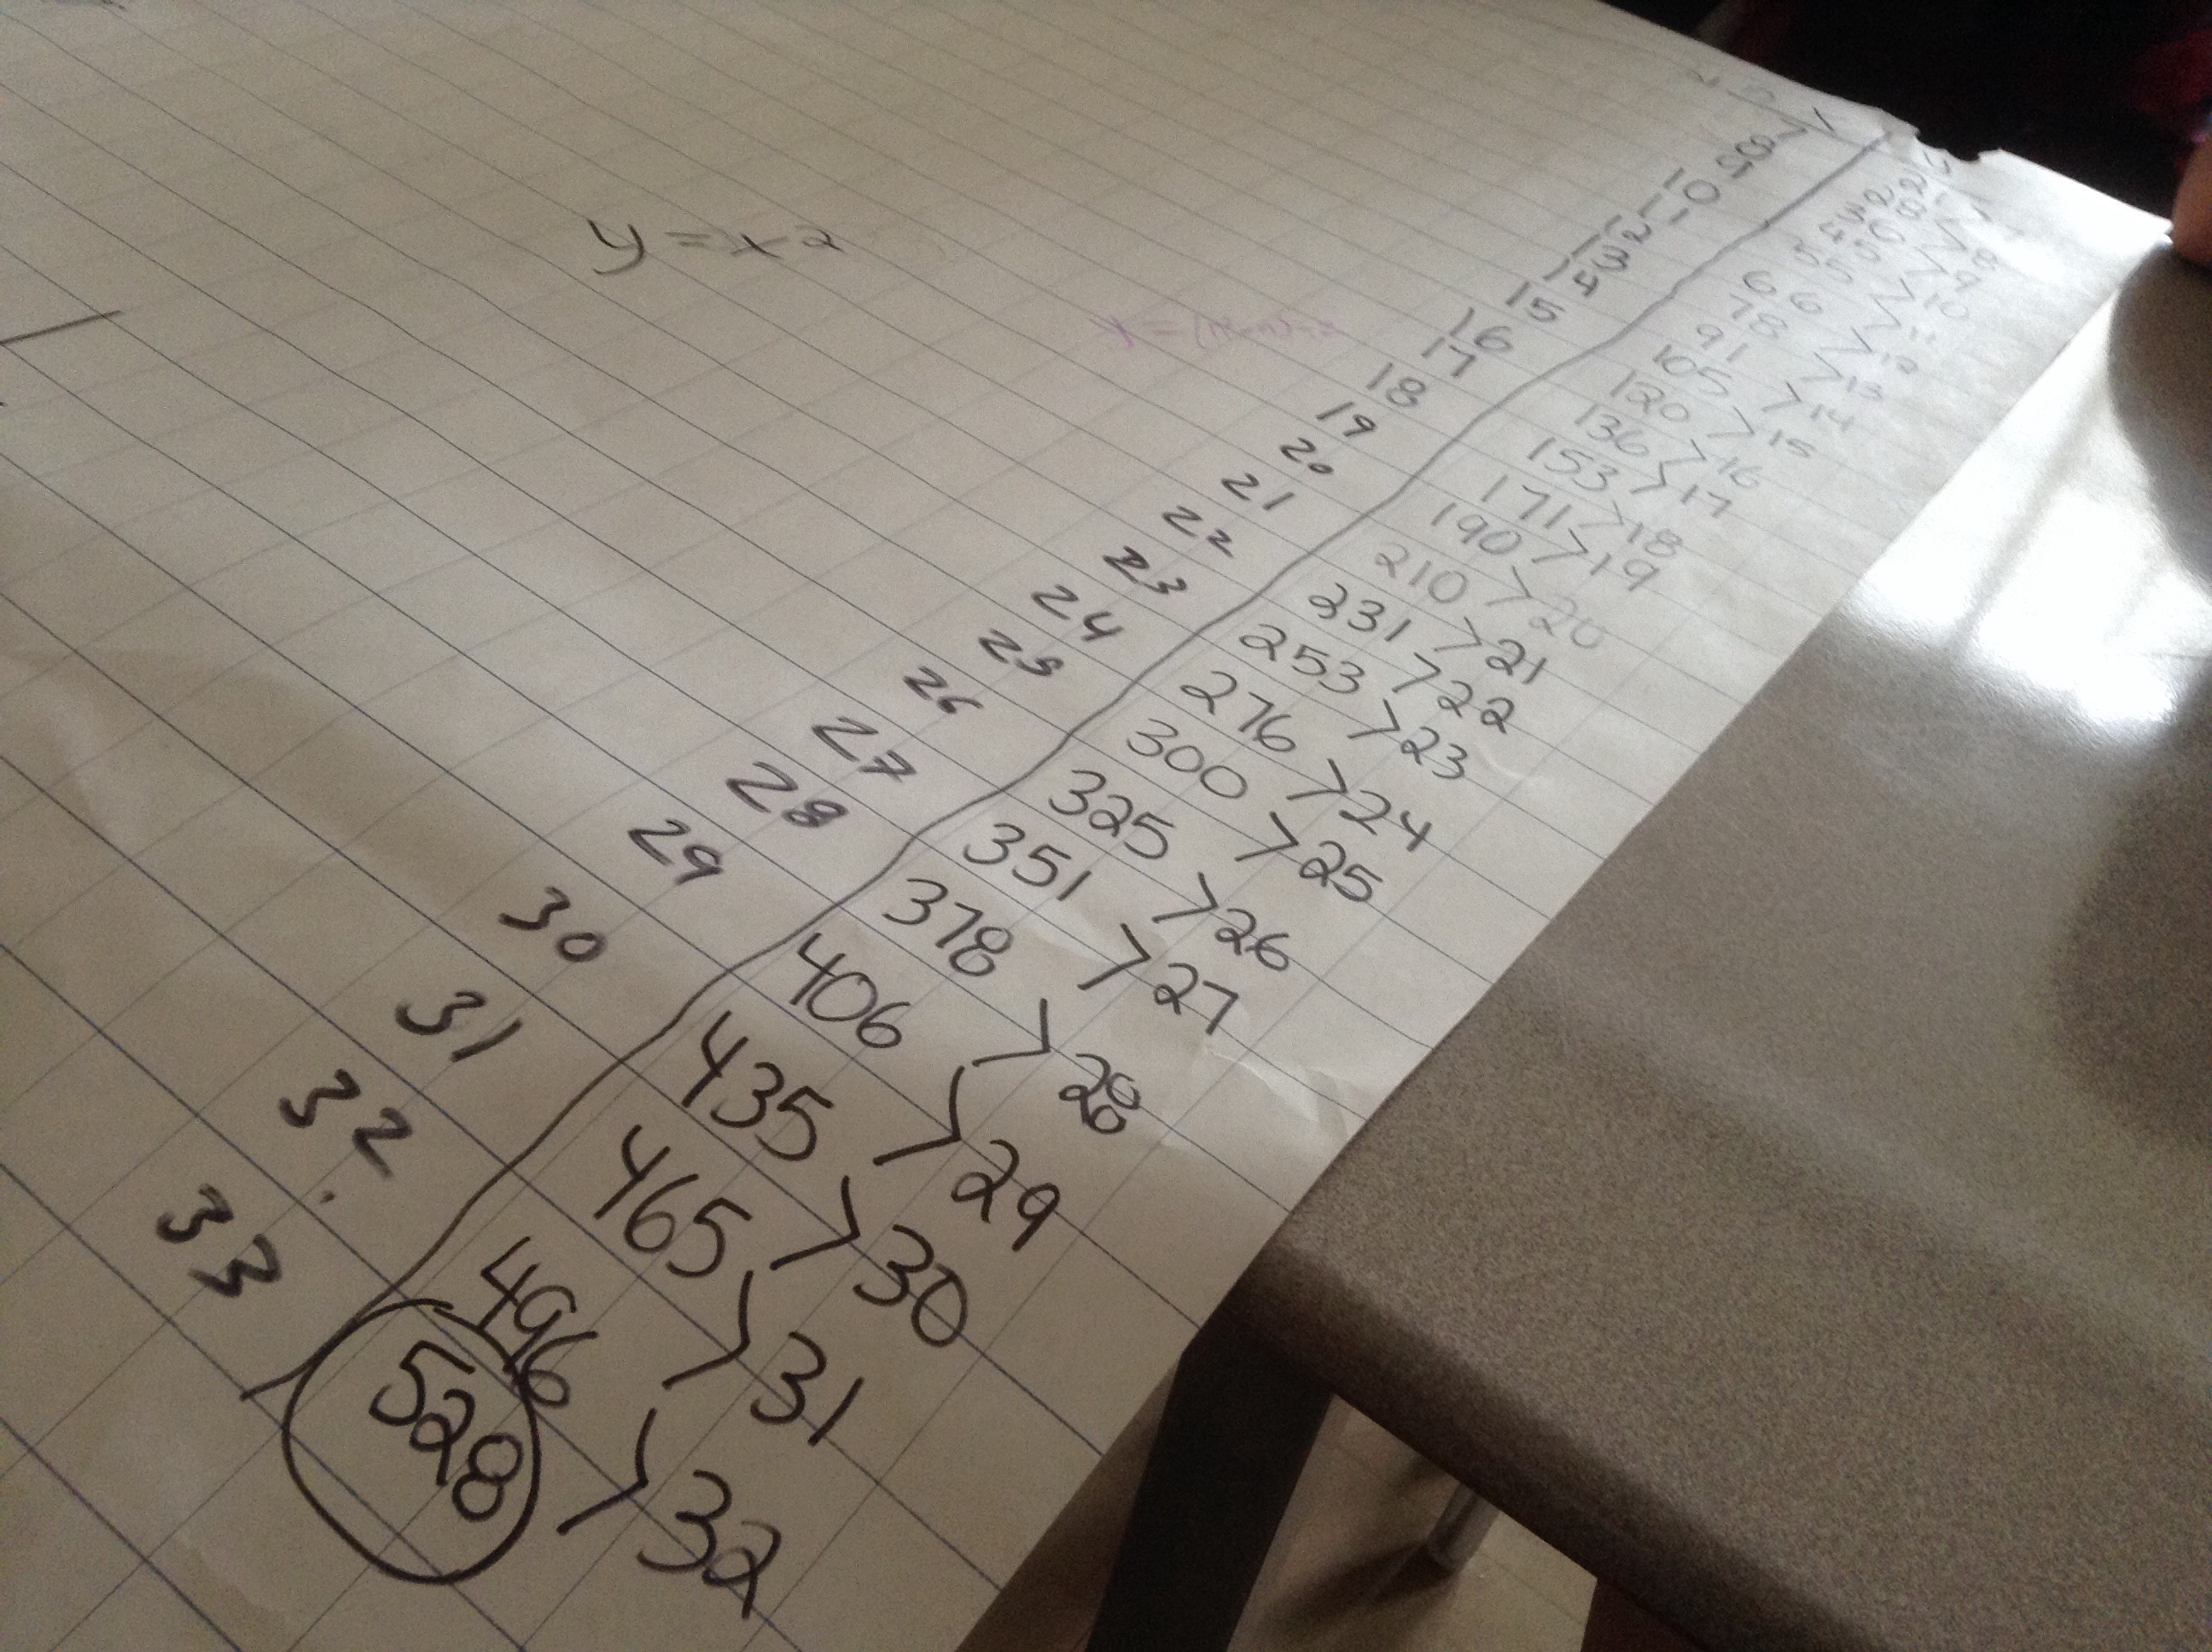 y = x²
15
16
17
18
19
20
21
22
23
24
25
26
27
28
29
30
31
32
33
66
78
91
105
120
136
153
171
190
210
231
253
276
300
325
351
378
406
435
465
496
528
>9
>10
>11
>12
>13
>14
>15
>16
>17
>18
>19
>20
>21
>22
>23
>24
>25
>26
>27
>28
>29
>30
>31
>32